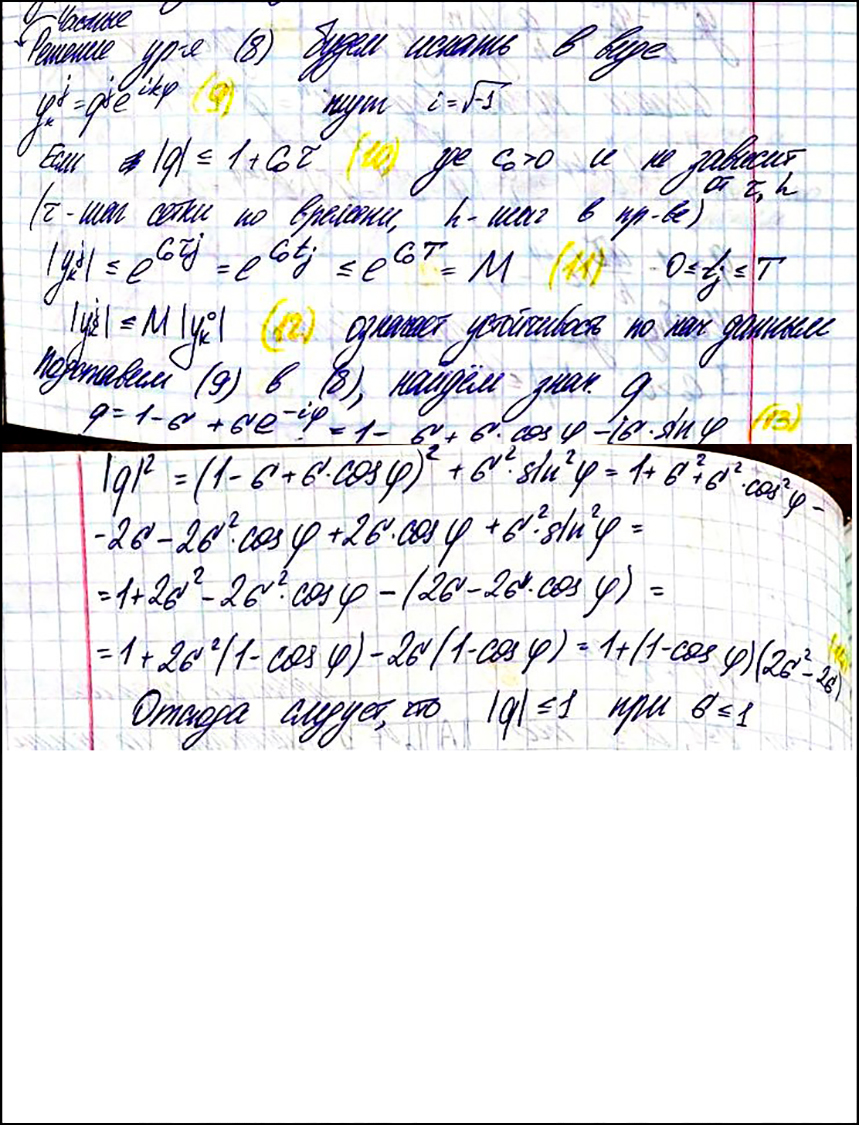 Частные
Решение ур-я (8) будем искать в виде
y_k^j = q^j e^{ikφ} (9) i = √-1
Если |q| ≤ 1 + C₀τ (10) где C₀>0 и не зависит
от τ, h
(τ-шаг сетки по времени, h-шаг в пр-ве)
|y_k^j| ≤ e^{C₀τj} = e^{C₀t_j} ≤ e^{C₀T} = M (11) 0 ≤ t_j ≤ T
|y_k^j| ≤ M |y_k^0| (12) означает устойчивость по нач данным
Подставим (9) в (8), найдём знач. q
q = 1-σ + σe^{-iφ} = 1 - σ + σ·cos φ - iσ·sin φ (13)
|q|² = (1-σ+σ·cos φ)² + σ²·sin²φ = 1+σ²+σ²·cos²φ -
-2σ-2σ²·cos φ+2σ·cos φ + σ²·sin²φ =
= 1+2σ²-2σ²·cos φ - (2σ-2σ·cos φ) =
= 1+2σ²(1-cos φ)-2σ(1-cos φ) = 1+(1-cos φ)(2σ²-2σ)
Отсюда следует, что |q| ≤ 1 при σ ≤ 1